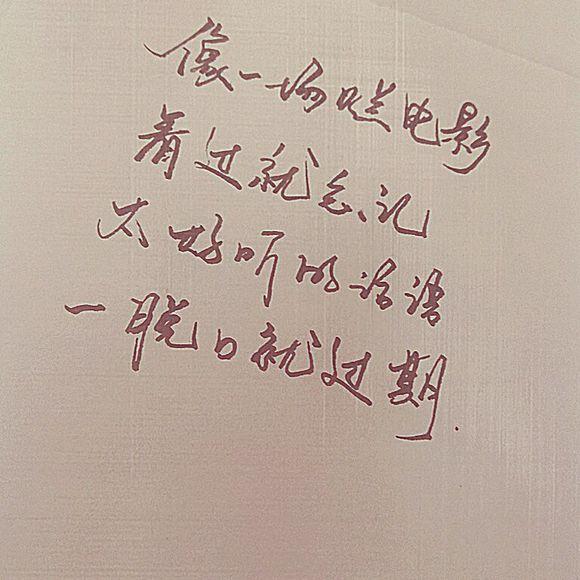 像一场烂电影
看过就忘记
太好听的话语
一脱口就过期.